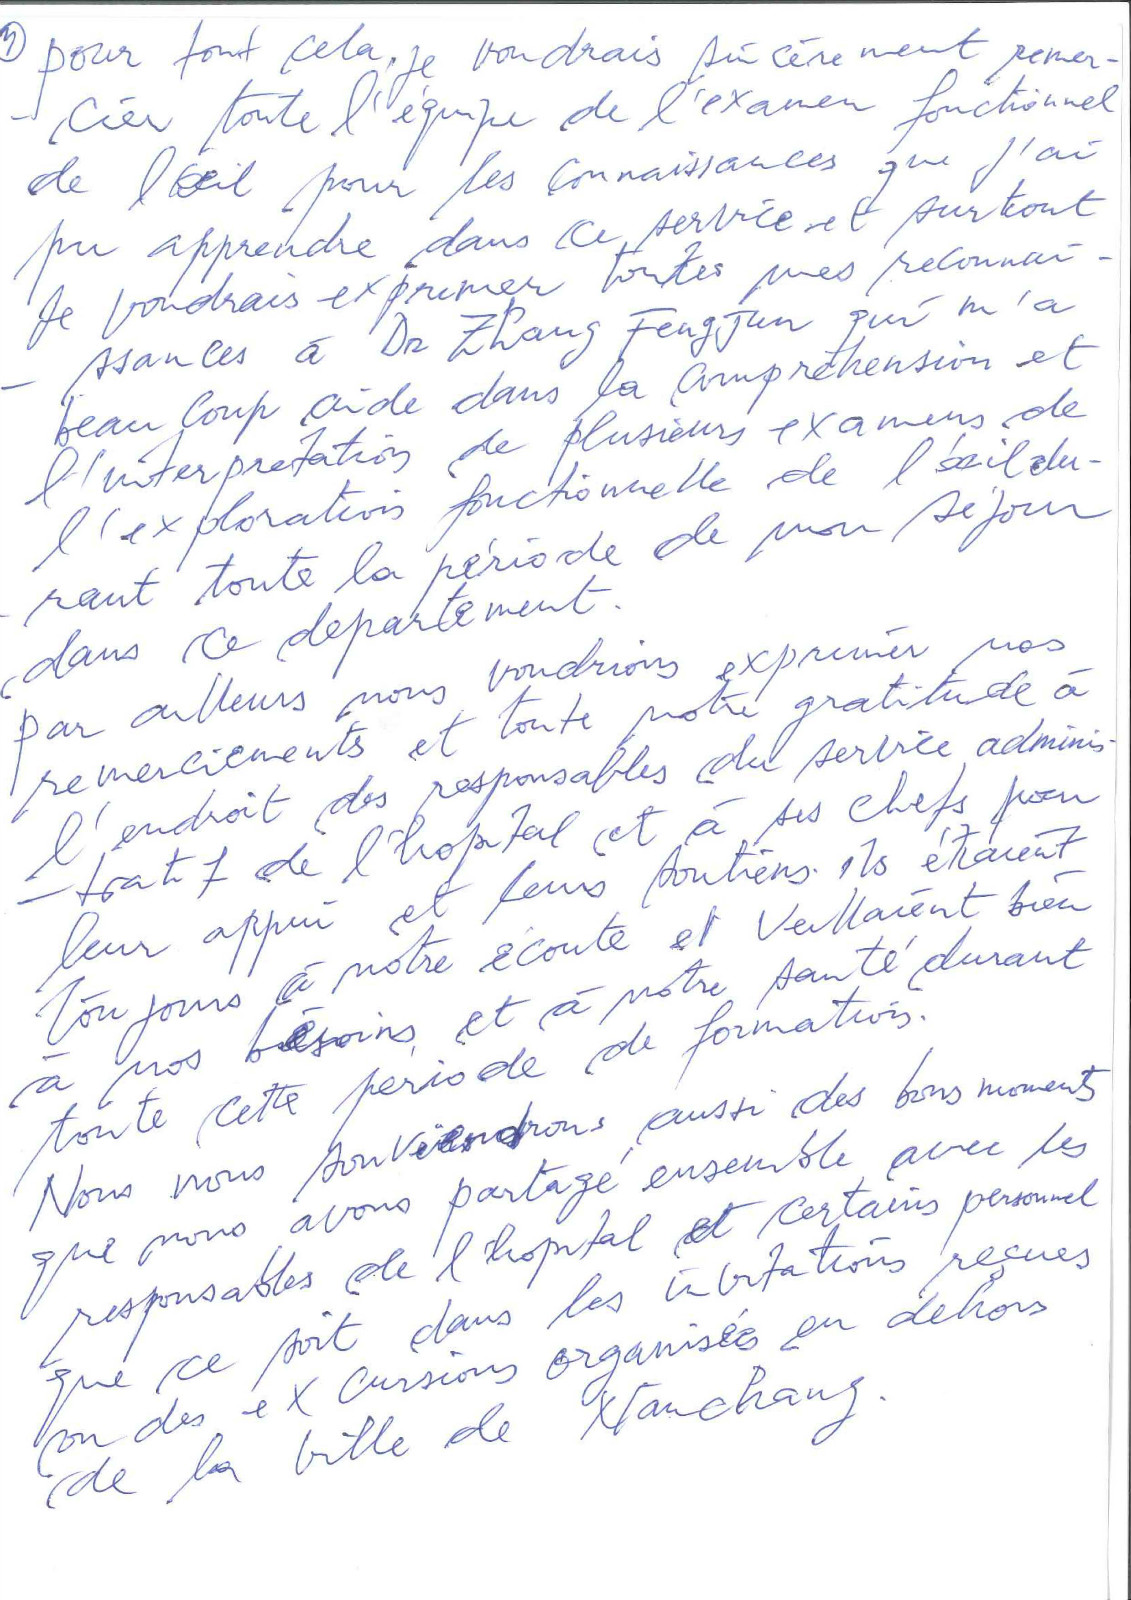 3) pour tout cela, je voudrais sincèrement remer-
- cier toute l'équipe de l'examen fonctionnel
de l'œil pour les connaissances que j'ai
pu apprendre dans ce service et surtout
Je voudrais exprimer toutes mes reconnai-
- ssances à Dr Zhang Fengjun qui m'a
beaucoup aidé dans la compréhension et
l'interpretation de plusieurs examens de
l'exploration fonctionnelle de l'œil du-
- rant toute la période de mon séjour
dans ce departement.
par ailleurs nous voudrions exprimer nos
remerciements et toute notre gratitude à
l'endroit des responsables du service adminis-
- tratif de l'hopital et à ses chefs pour
leur appui et leurs soutiens. ils étaient
toujours à notre écoute et veillaient bien
à nos besoins et à notre santé durant
toute cette période de formation.
Nous nous souviendrons aussi des bons moments
que nous avons partagé ensemble avec les
responsables de l'hopital et certains personnel
que ce soit dans les invitations reçues
ou des excursions organisées en dehors
de la ville de Nanchang.